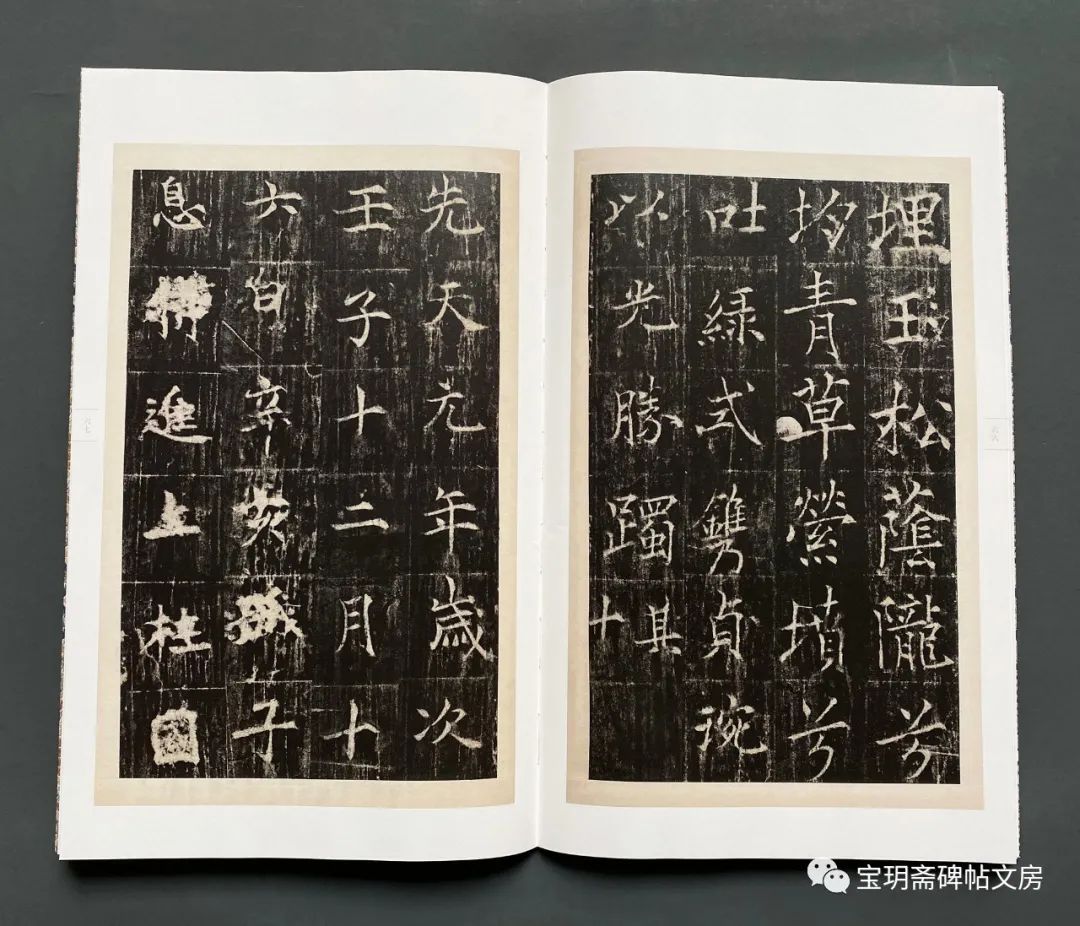 埋玉松蔭隴兮
青草縈墳兮
吐緑式鐫貞琬
以光勝躅其十
六六
先天元年歲次
壬子十二月十
六日辛亥子
息進上柱國
六七
宝玥斋碑帖文房